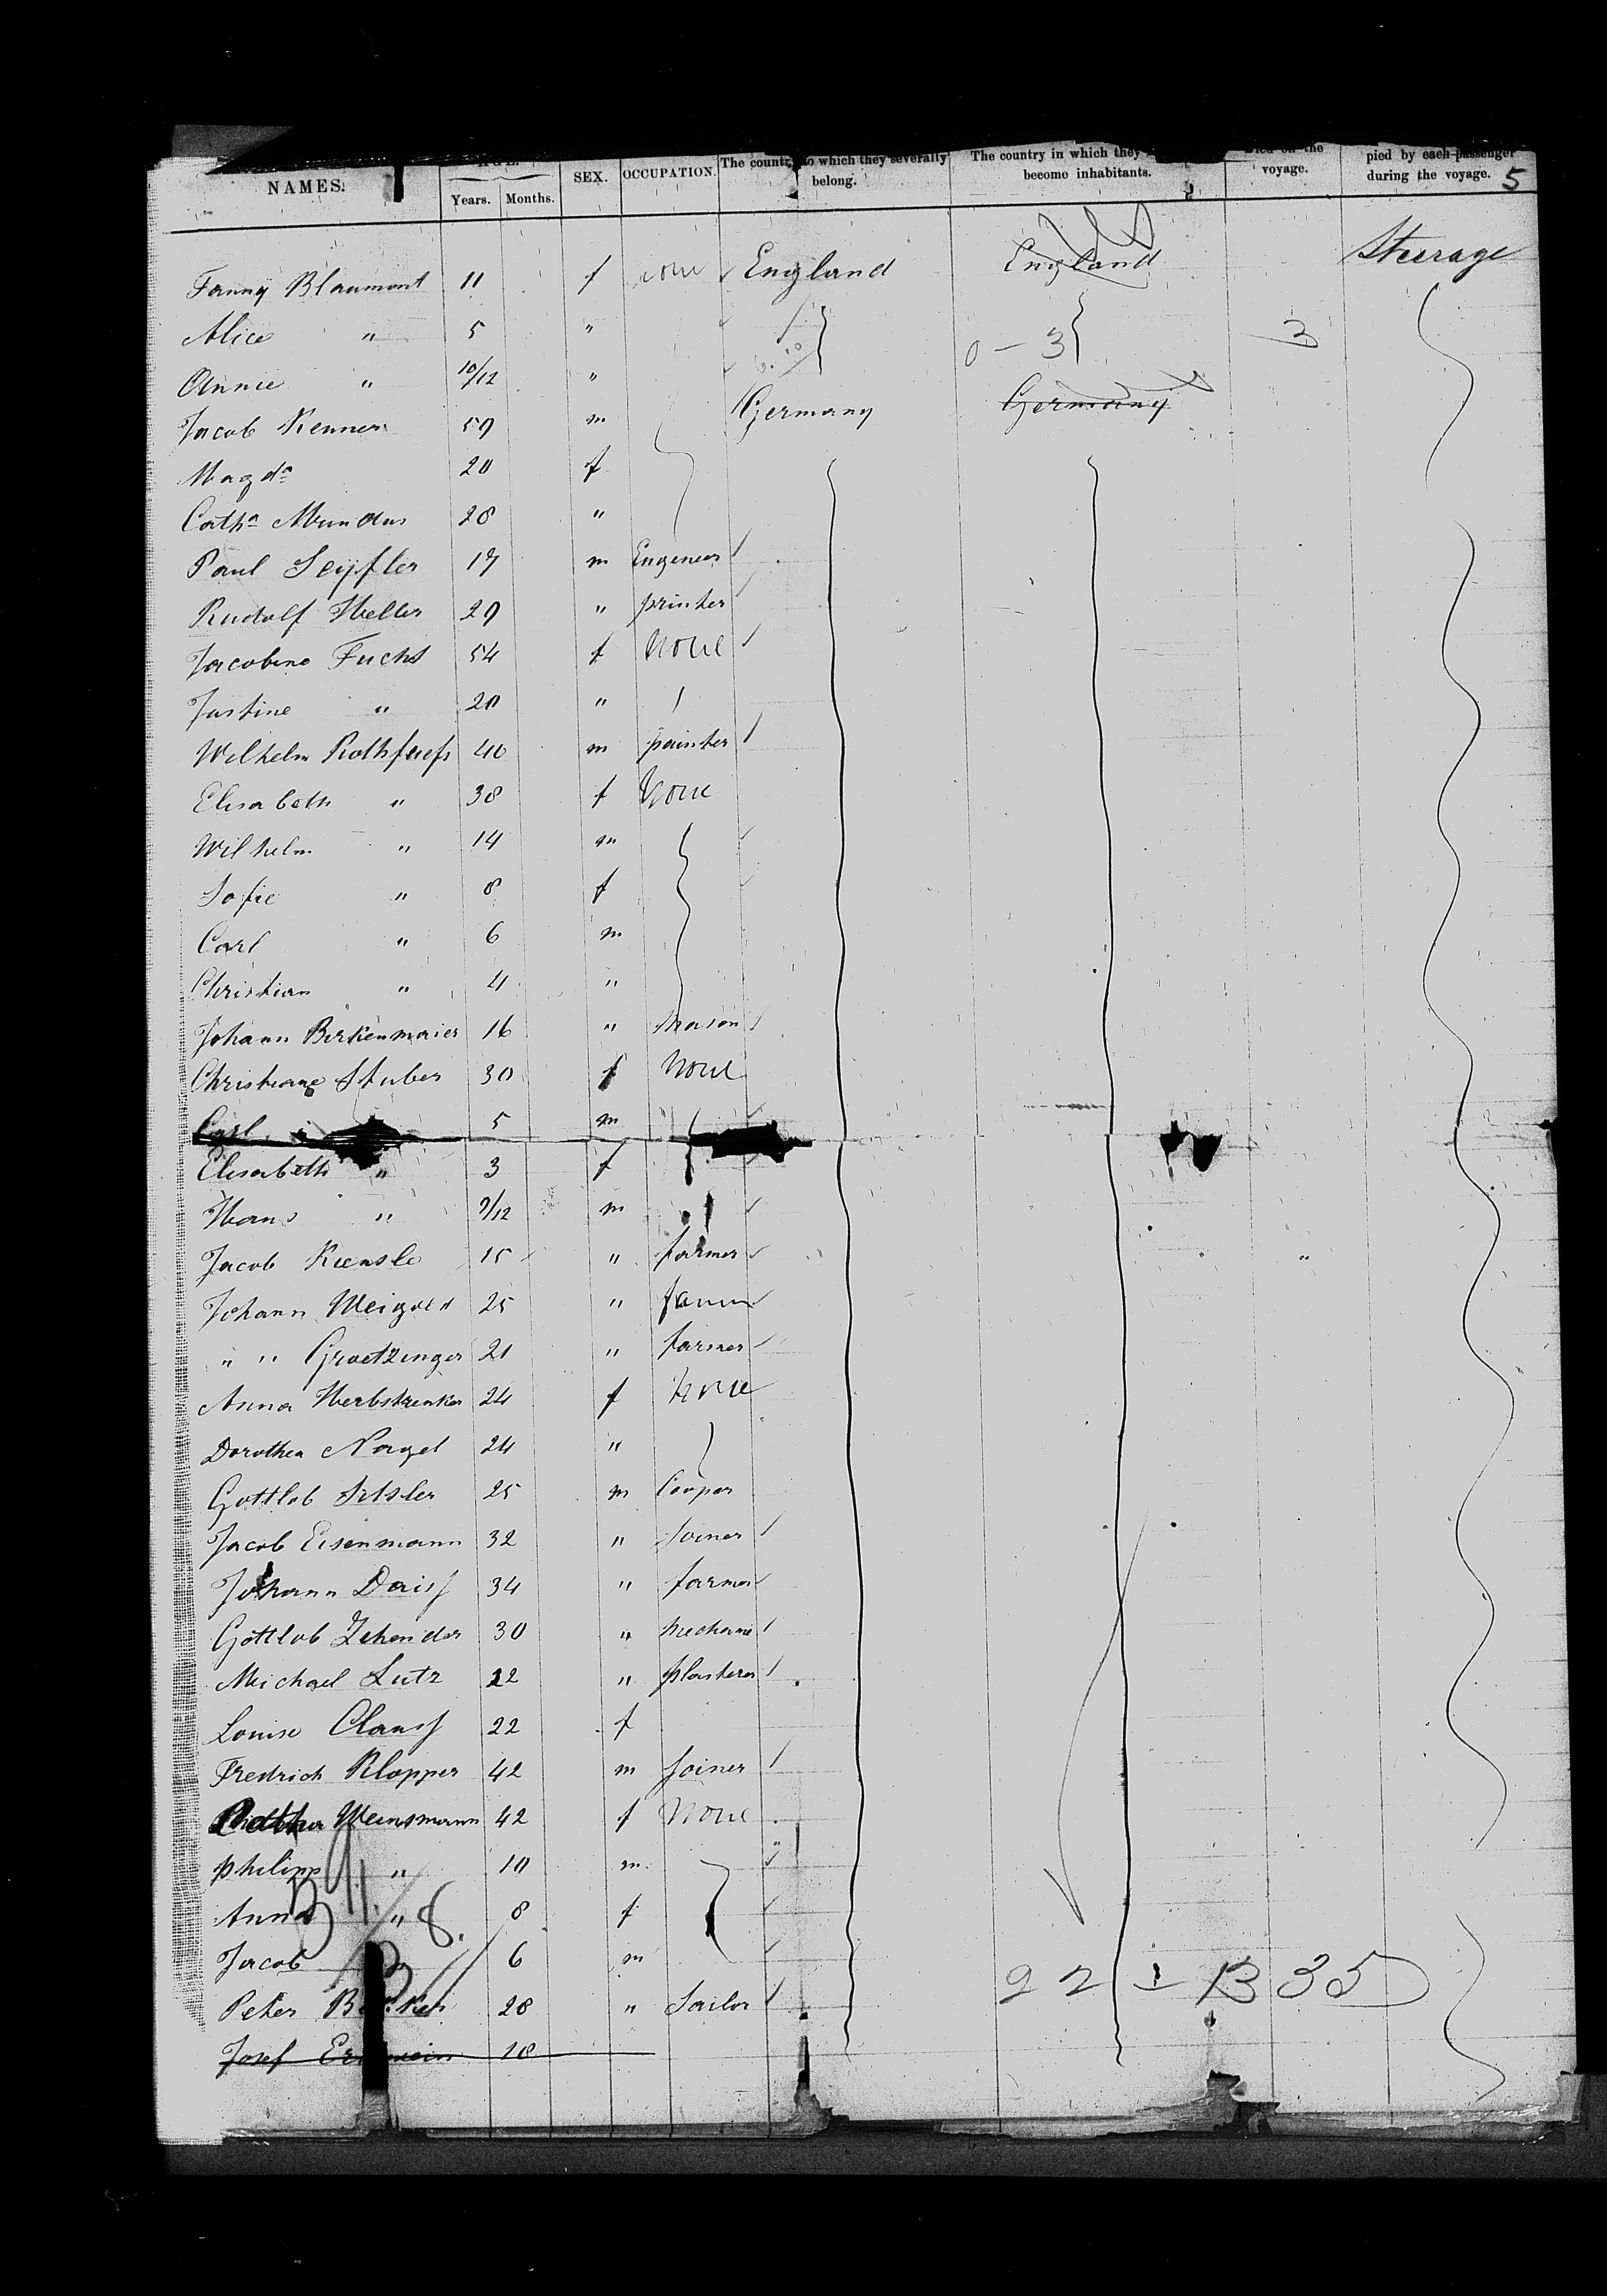 NAMES. Years. Months. SEX. OCCUPATION. The country to which they severally belong. The country in which they become inhabitants. Died on the voyage. pied by each passenger during the voyage. 5
Fanny Blaumont 11 f none England England Steerage
Alice " 5 " 0 - 3 3
Annie " 10/12 "
Jacob Renner 59 m Germany Germany
Magda 20 f
Catha Mundus 28 "
Paul 17 m Engeneer
Rudolf Heller 29 " printer
Jacobine Fuchs 54 f None
Justine " 20 "
Wilhelm Rothfuss 40 m painter
Elisabeth " 38 f None
Wilhelm " 14 m
Sofie " 8 f
Carl " 6 m
Christian " 4 "
Johann Birkenmaier 16 " mason
Christiane Stuber 30 f None
Carl 5 m
Elisabeth " 3 f
Hans " 9/12 m
Jacob Kiensle 15 " farmer
Johann Weigold 25 " farmer
" " Groetzinger 21 " farmer
Anna 24 f None
Dorothea Nagel 24 "
Gottlob 25 m Cooper
Jacob Eisenmann 32 " Joiner
Johann Daiss 34 " farmer
Gottlob Zehender 30 " mechanic
Michael Lutz 22 " plasterer
Louise Clauss 22 f
Fredrich Klopper 42 m Joiner
Weinsmann 42 f None
Philipp " 10 m
Anna " 8 f
Jacob 6 m
Peter 28 " Sailor 22 - 13 35
Josef 18